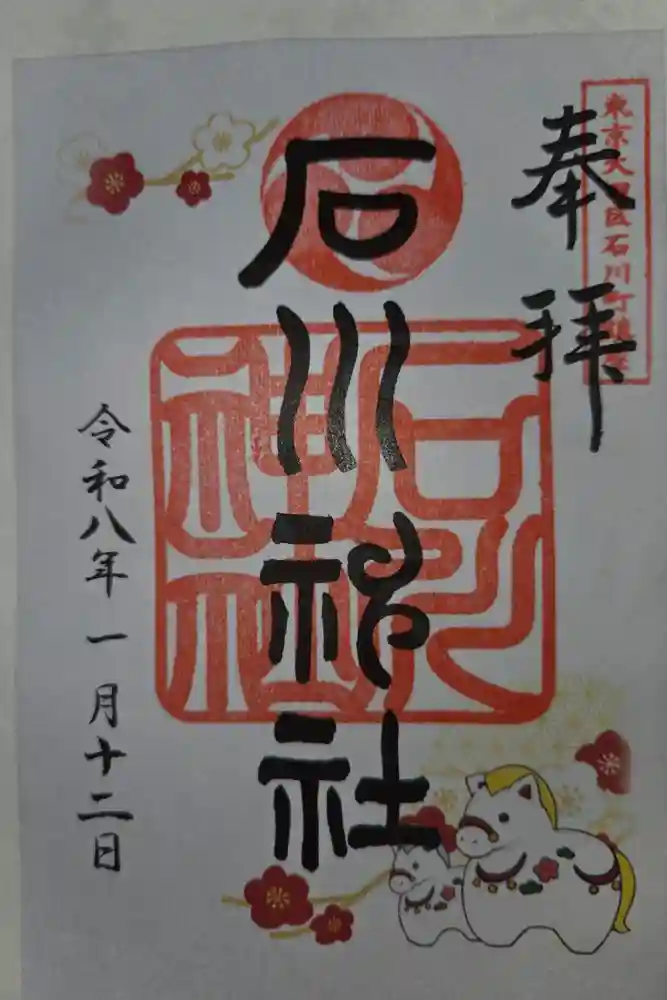 奉拝
東京大田区石川町鎮座
石川神社
石川神社
令和八年一月十二日